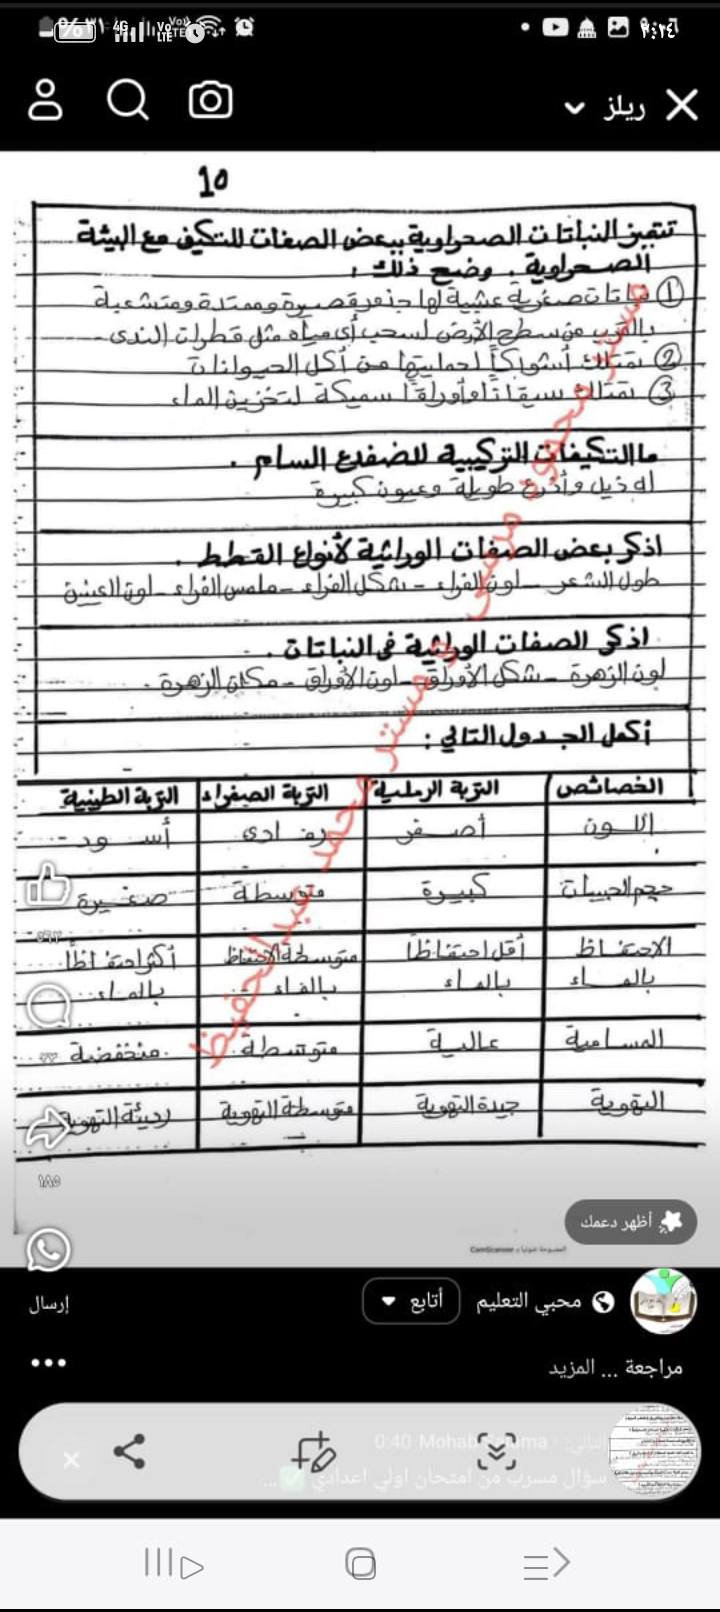 ٣١%
4G
Vo LTE
٩:٢٤
ريلز
10
تتميز النباتات الصحراوية ببعض الصفات للتكيف مع البيئة
الصحراوية . وضح ذلك :
① نباتات صغيرة عشبية لها جذور قصيرة وممتدة ومتشعبة
بالقرب من سطح الأرض لسحب أي مياه مثل قطرات الندى
② تمتلك أشواكاً لحمايتها من أكل الحيوانات
③ تمتلك سيقاناً أو أوراقاً سميكة لتخزين الماء
ما التكيفات التركيبية للضفدع السام .
له ذيل وأذرع طويلة وعيون كبيرة
اذكر بعض الصفات الوراثية لأنواع القطط .
طول الشعر - لون الفراء - شكل الفراء - ملمس الفراء - لون العينين
اذكر الصفات الوراثية في النباتات .
لون الزهرة - شكل الأوراق - لون الأوراق - مكان الزهرة .
أكمل الجدول التالي :
الخصائص التربة الرملية التربة الصفراء التربة الطينية
اللون أصفر رمادى أسود
حجم الحبيبات كبيرة متوسطة صغيرة
الاحتفاظ بالماء أقل احتفاظاً بالماء متوسطة الاحتفاظ بالماء أكثر احتفاظاً بالماء
المسامية عالية متوسطة منخفضة
التهوية جيدة التهوية متوسطة التهوية رديئة التهوية
مستر محمود مرسى و مستر محمد عبدالحفيظ
١٨٥
أظهر دعمك
CamScanner الممسوحة ضوئيا بـ
محبي التعليم
أتابع
إرسال
مراجعة ... المزيد
0:40 Mohab
سؤال مسرب من امتحان اولي اعدادي ✅ ...